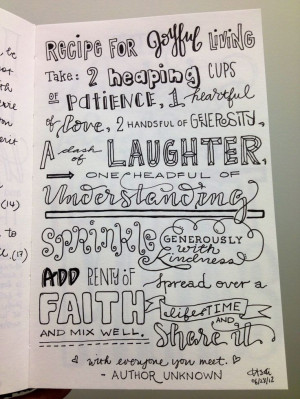 RECIPE FOR Joyful LIVING
Take: 2 heaping CUPS
OF PATIENCE, 1 heartful
of love, 2 HANDSFUL OF GENEROSITY,
A dash of LAUGHTER,
ONE HEADFUL OF
Understanding
SPRINKLE GENEROUSLY
with
kindness
ADD PLENTY OF
FAITH
AND MIX WELL.
Spread over a
lifeTIME
AND
Share it
with everyone you meet.
- AUTHOR UNKNOWN
6/23/12
be
(14)
to
(17)